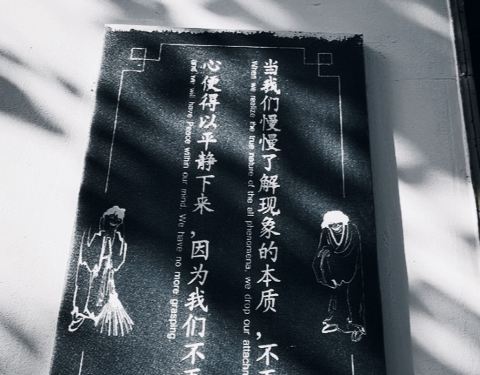 当我们慢慢了解现象的本质，不
When we realize the true nature of the all phenomena, we drop our
心便得以平静下来，因为我们不
and we will have Peace within our mind. We have no more grasping